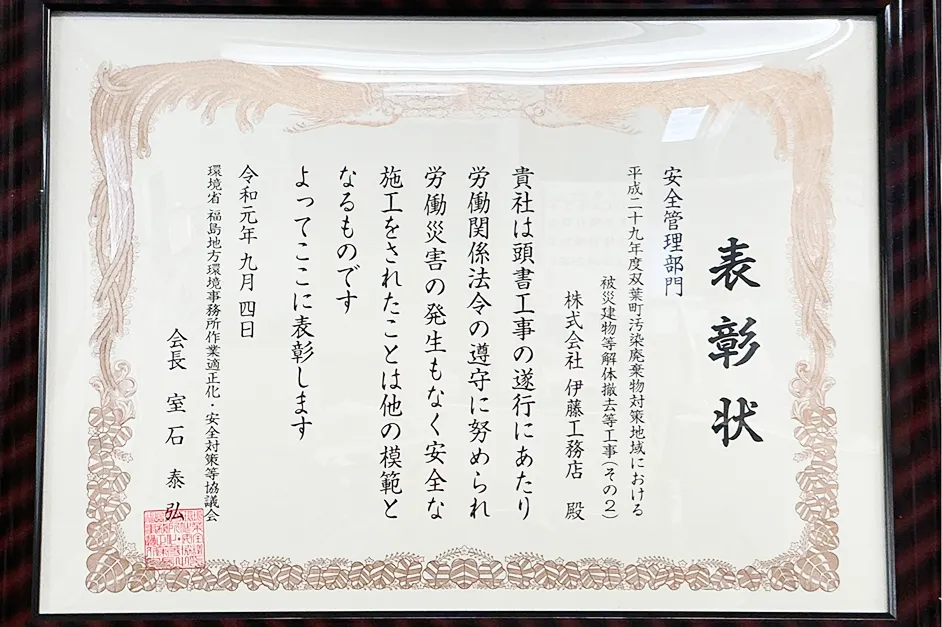 表彰状
安全管理部門
平成二十九年度双葉町汚染廃棄物対策地域における
被災建物等解体撤去等工事(その2)
株式会社 伊藤工務店 殿
貴社は頭書工事の遂行にあたり
労働関係法令の遵守に努められ
労働災害の発生もなく安全な
施工をされたことは他の模範と
なるものです
よってここに表彰します
令和元年 九月 四日
環境省 福島地方環境事務所作業適正化・安全対策等協議会
会長 室石 泰弘